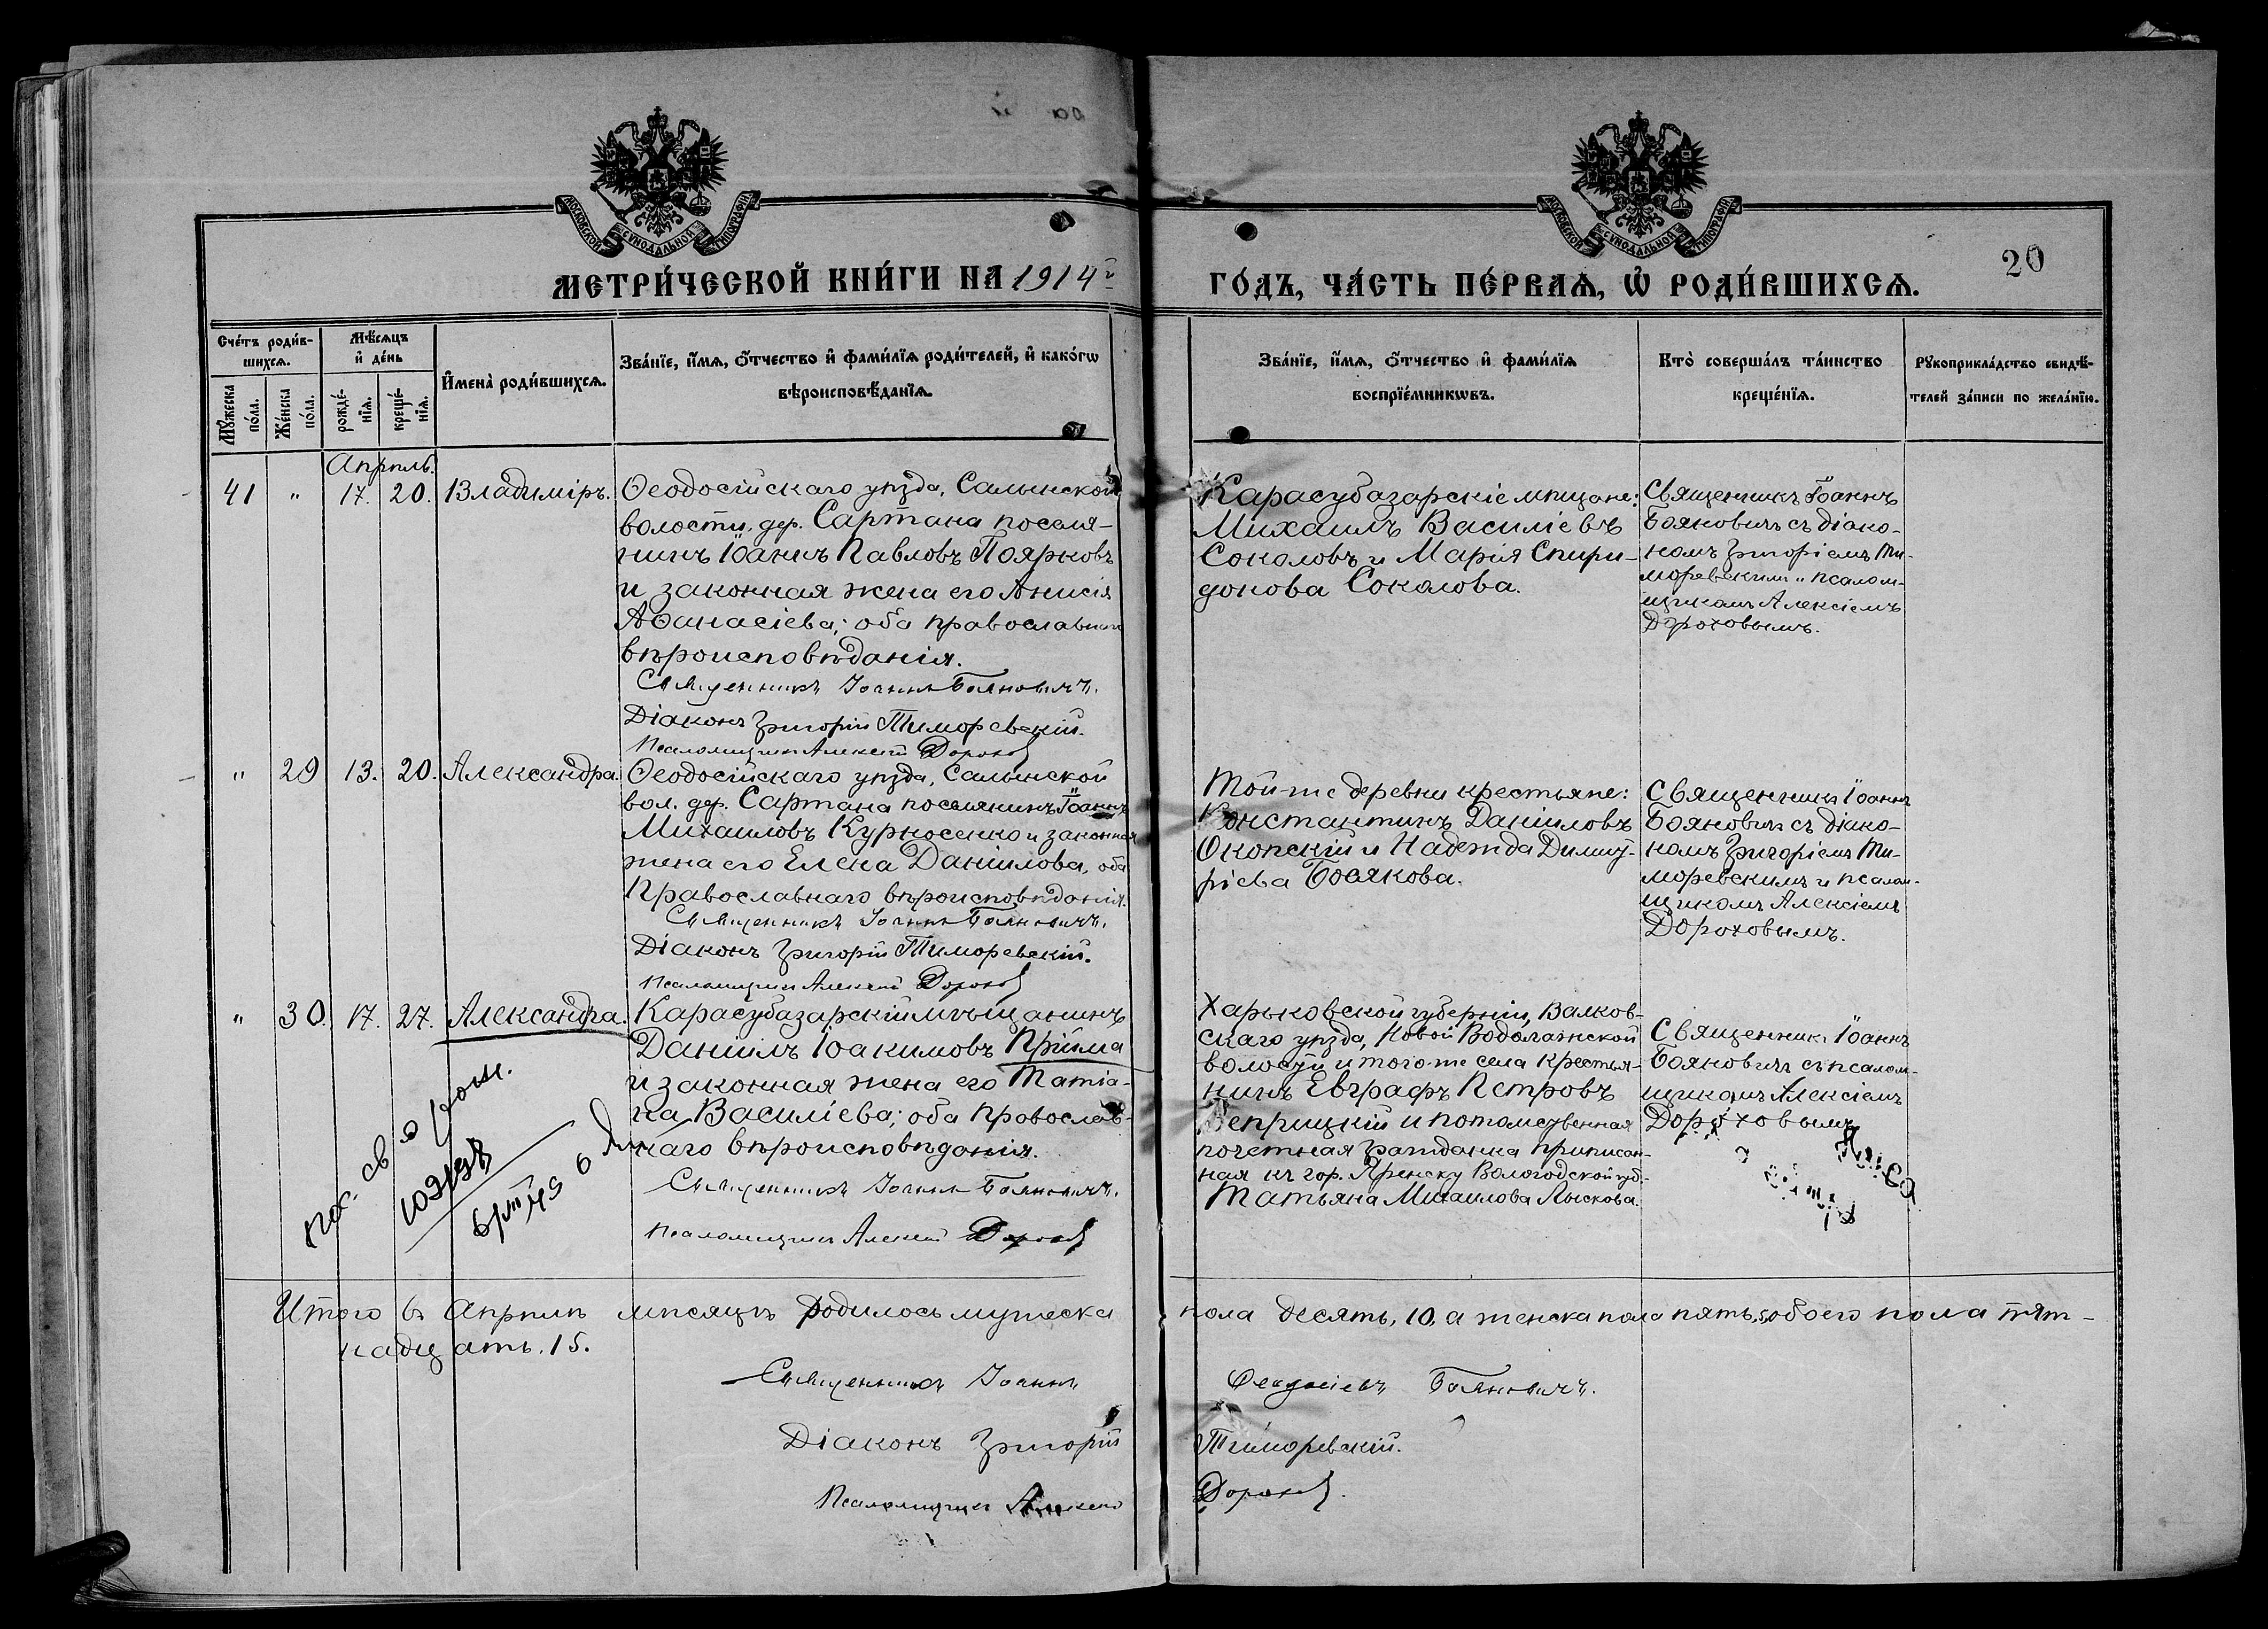 МОСКОВСКОЙ СѴНОДАЛЬНОЙ ТИПОГРАФІИ
МОСКОВСКОЙ СѴНОДАЛЬНОЙ ТИПОГРАФІИ
20
МЕТРИ́ЧЕСКОЙ КНИ́ГИ НА 1914й
ГО́ДЪ, ЧА́СТЬ ПЕ́РВАѦ, Ѡ҆ РОДИ́ВШИХСѦ.
Сче́тъ роди́в-
шихсѧ.
Мꙋ́жеска
по́ла.
Же́нска
по́ла.
Мѣ́сѧцъ
и҆ де́нь
рожде́-
нїѧ.
креще́-
нїѧ.
И҆мена̀ роди́вшихсѧ.
Зва́нїе, и҆́мѧ, ѻ҆́тчество и҆ фами́лїѧ роди́телей, и҆ како́гѡ
вѣроисповѣ́данїѧ.
Зва́нїе, и҆́мѧ, ѻ҆́тчество и҆ фами́лїѧ
воспрїе́мникѡвъ.
Кто̀ соверша́лъ та́инство
креще́нїѧ.
Рꙋкоприкла́дство свидѣ́-
телей за́писи по жела́нїю.
Апрѣль.
41 " 17. 20. Владиміръ.
Ѳеодосійскаго уѣзда, Салынской
волости, дер. Сартана поселя-
нинъ Іоаннъ Павловъ Поярковъ
и законная жена его Анисія
Аѳанасіева; оба православнаго
вѣроисповѣданія.
Священникъ Іоаннъ Бояновичъ.
Діаконъ Григорій Тиморевскій.
Псаломщикъ Алексій Дороховъ
Карасубазарскіе мѣщане:
Михаилъ Василіевъ
Соколовъ и Марія Спири-
донова Соколова.
Священникъ Іоаннъ
Бояновичъ съ діако-
номъ Григоріемъ Ти-
моревскимъ и псалом-
щикомъ Алексіемъ
Дороховымъ.
" 29 13. 20. Александра.
Ѳеодосійскаго уѣзда, Салынской
вол. дер. Сартана поселянинъ Іоаннъ
Михаиловъ Курносенко и законная
жена его Елена Даніилова, оба
Православнаго вѣроисповѣданія.
Священникъ Іоаннъ Бояновичъ.
Діаконъ Григорій Тиморевскій.
Псаломщикъ Алексій Дороховъ
Той-же деревни крестьяне:
Константинъ Даніиловъ
Окопскій и Надежда Димит-
ріева Боякова.
Священникъ Іоаннъ
Бояновичъ съ діако-
номъ Григоріемъ Ти-
моревскимъ и псалом-
щикомъ Алексіемъ
Дороховымъ.
" 30. 17. 27. Александра.
Карасубазарскій мѣщанинъ
Даніилъ Іоакимовъ Прійма
и законная жена его Татіа-
на Василіева; оба православ-
наго вѣроисповѣданія.
Священникъ Іоаннъ Бояновичъ.
Псаломщикъ Алексій Дороховъ
Харьковской губерніи, Валков-
скаго уѣзда, Новой Водолажской
волости и того-же села крестья-
нинъ Евграфъ Петровъ
Веприцкій и потомственная
почетная гражданка приписан-
ная къ гор. Яренску Вологодской губ.
Татьяна Михаилова Лыскова.
Священникъ Іоаннъ
Бояновичъ съ псалом-
щикомъ Алексіемъ
Дороховымъ
св о рож.
Итого въ Апрѣлѣ мѣсяцѣ родилось мужеска пола десять, 10, а женска пола пять, 5, обоего пола пят-
надцать. 15.
Священникъ Іоаннъ Ѳеодосіевъ Бояновичъ.
Діаконъ Григорій Тиморевскій.
Псаломщикъ Алексій Дороховъ.